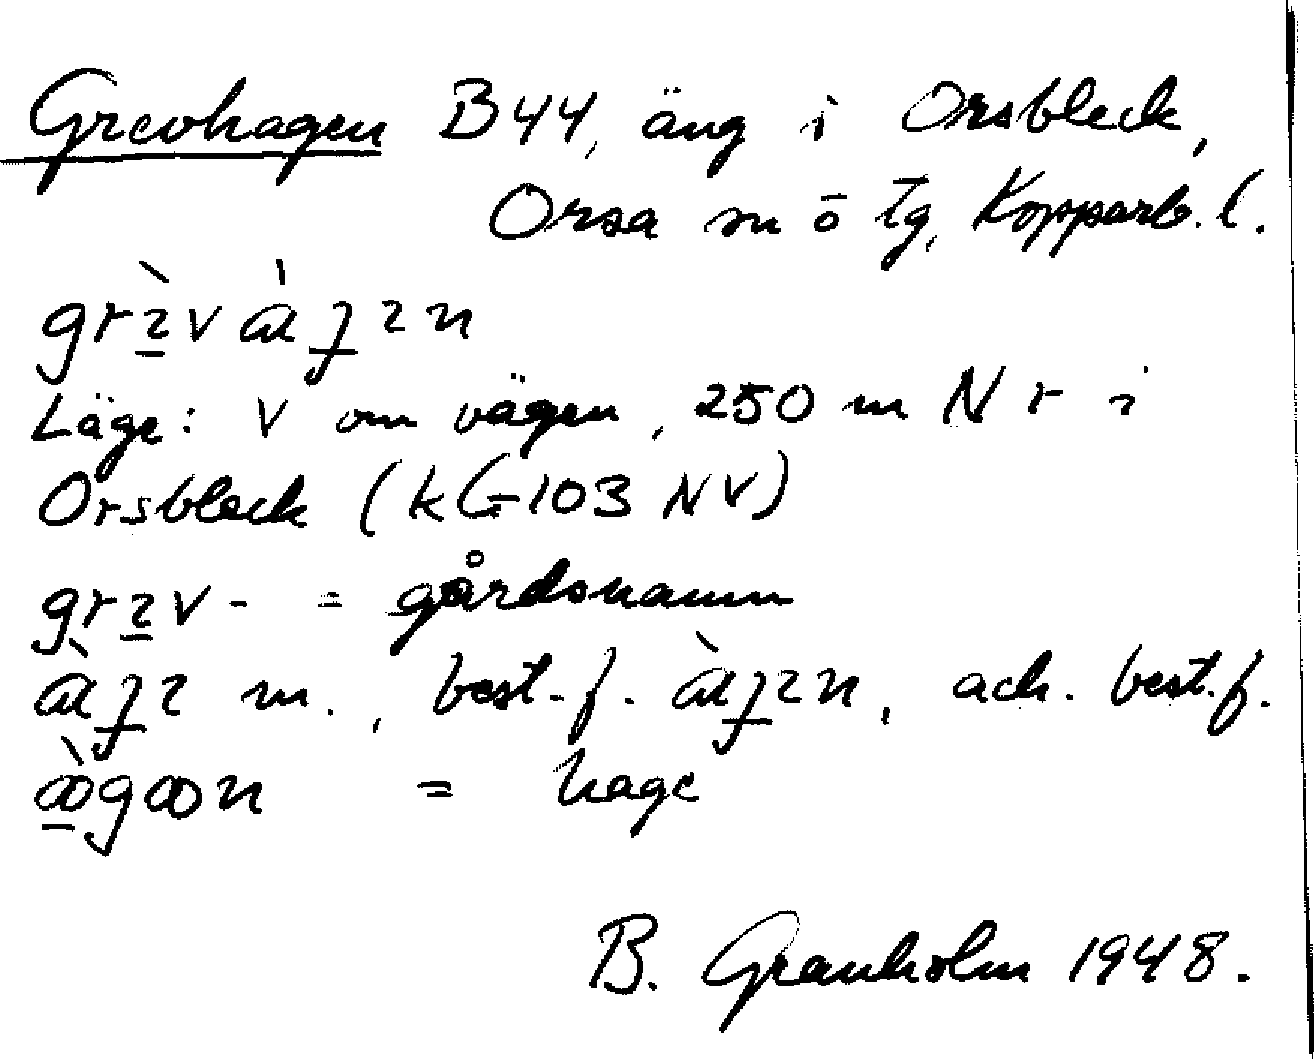 Grevhagen B44, äng i Orsbleck,
Orsa sn ö tg, Kopparb. l.
Läge: V om vägen, 250 m N r i
Orsbleck (kG-103 NV)
= gårdsnamn
m., best. f. ack. best. f.
= hage
B. Granholm 1948.